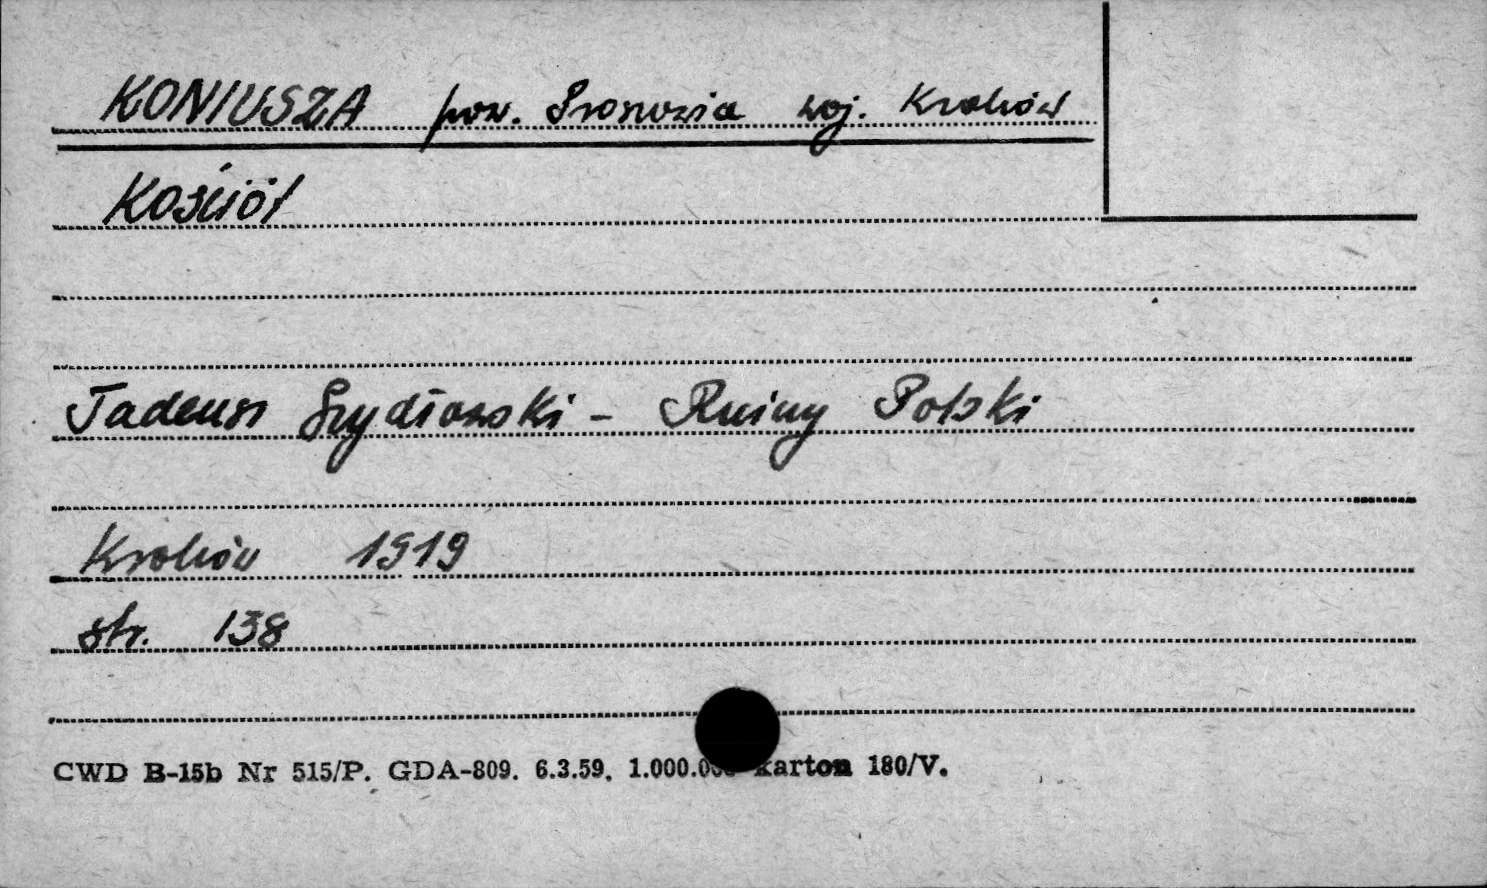 KONIUSZA pow. Proszowice woj. Kraków
Kościół
Tadeusz Szydłowski - Ruiny Polski
Kraków 1919
str. 138
CWD B-15b Nr 515/P. GDA-809. 6.3.59. 1.000.000 karton 180/V.